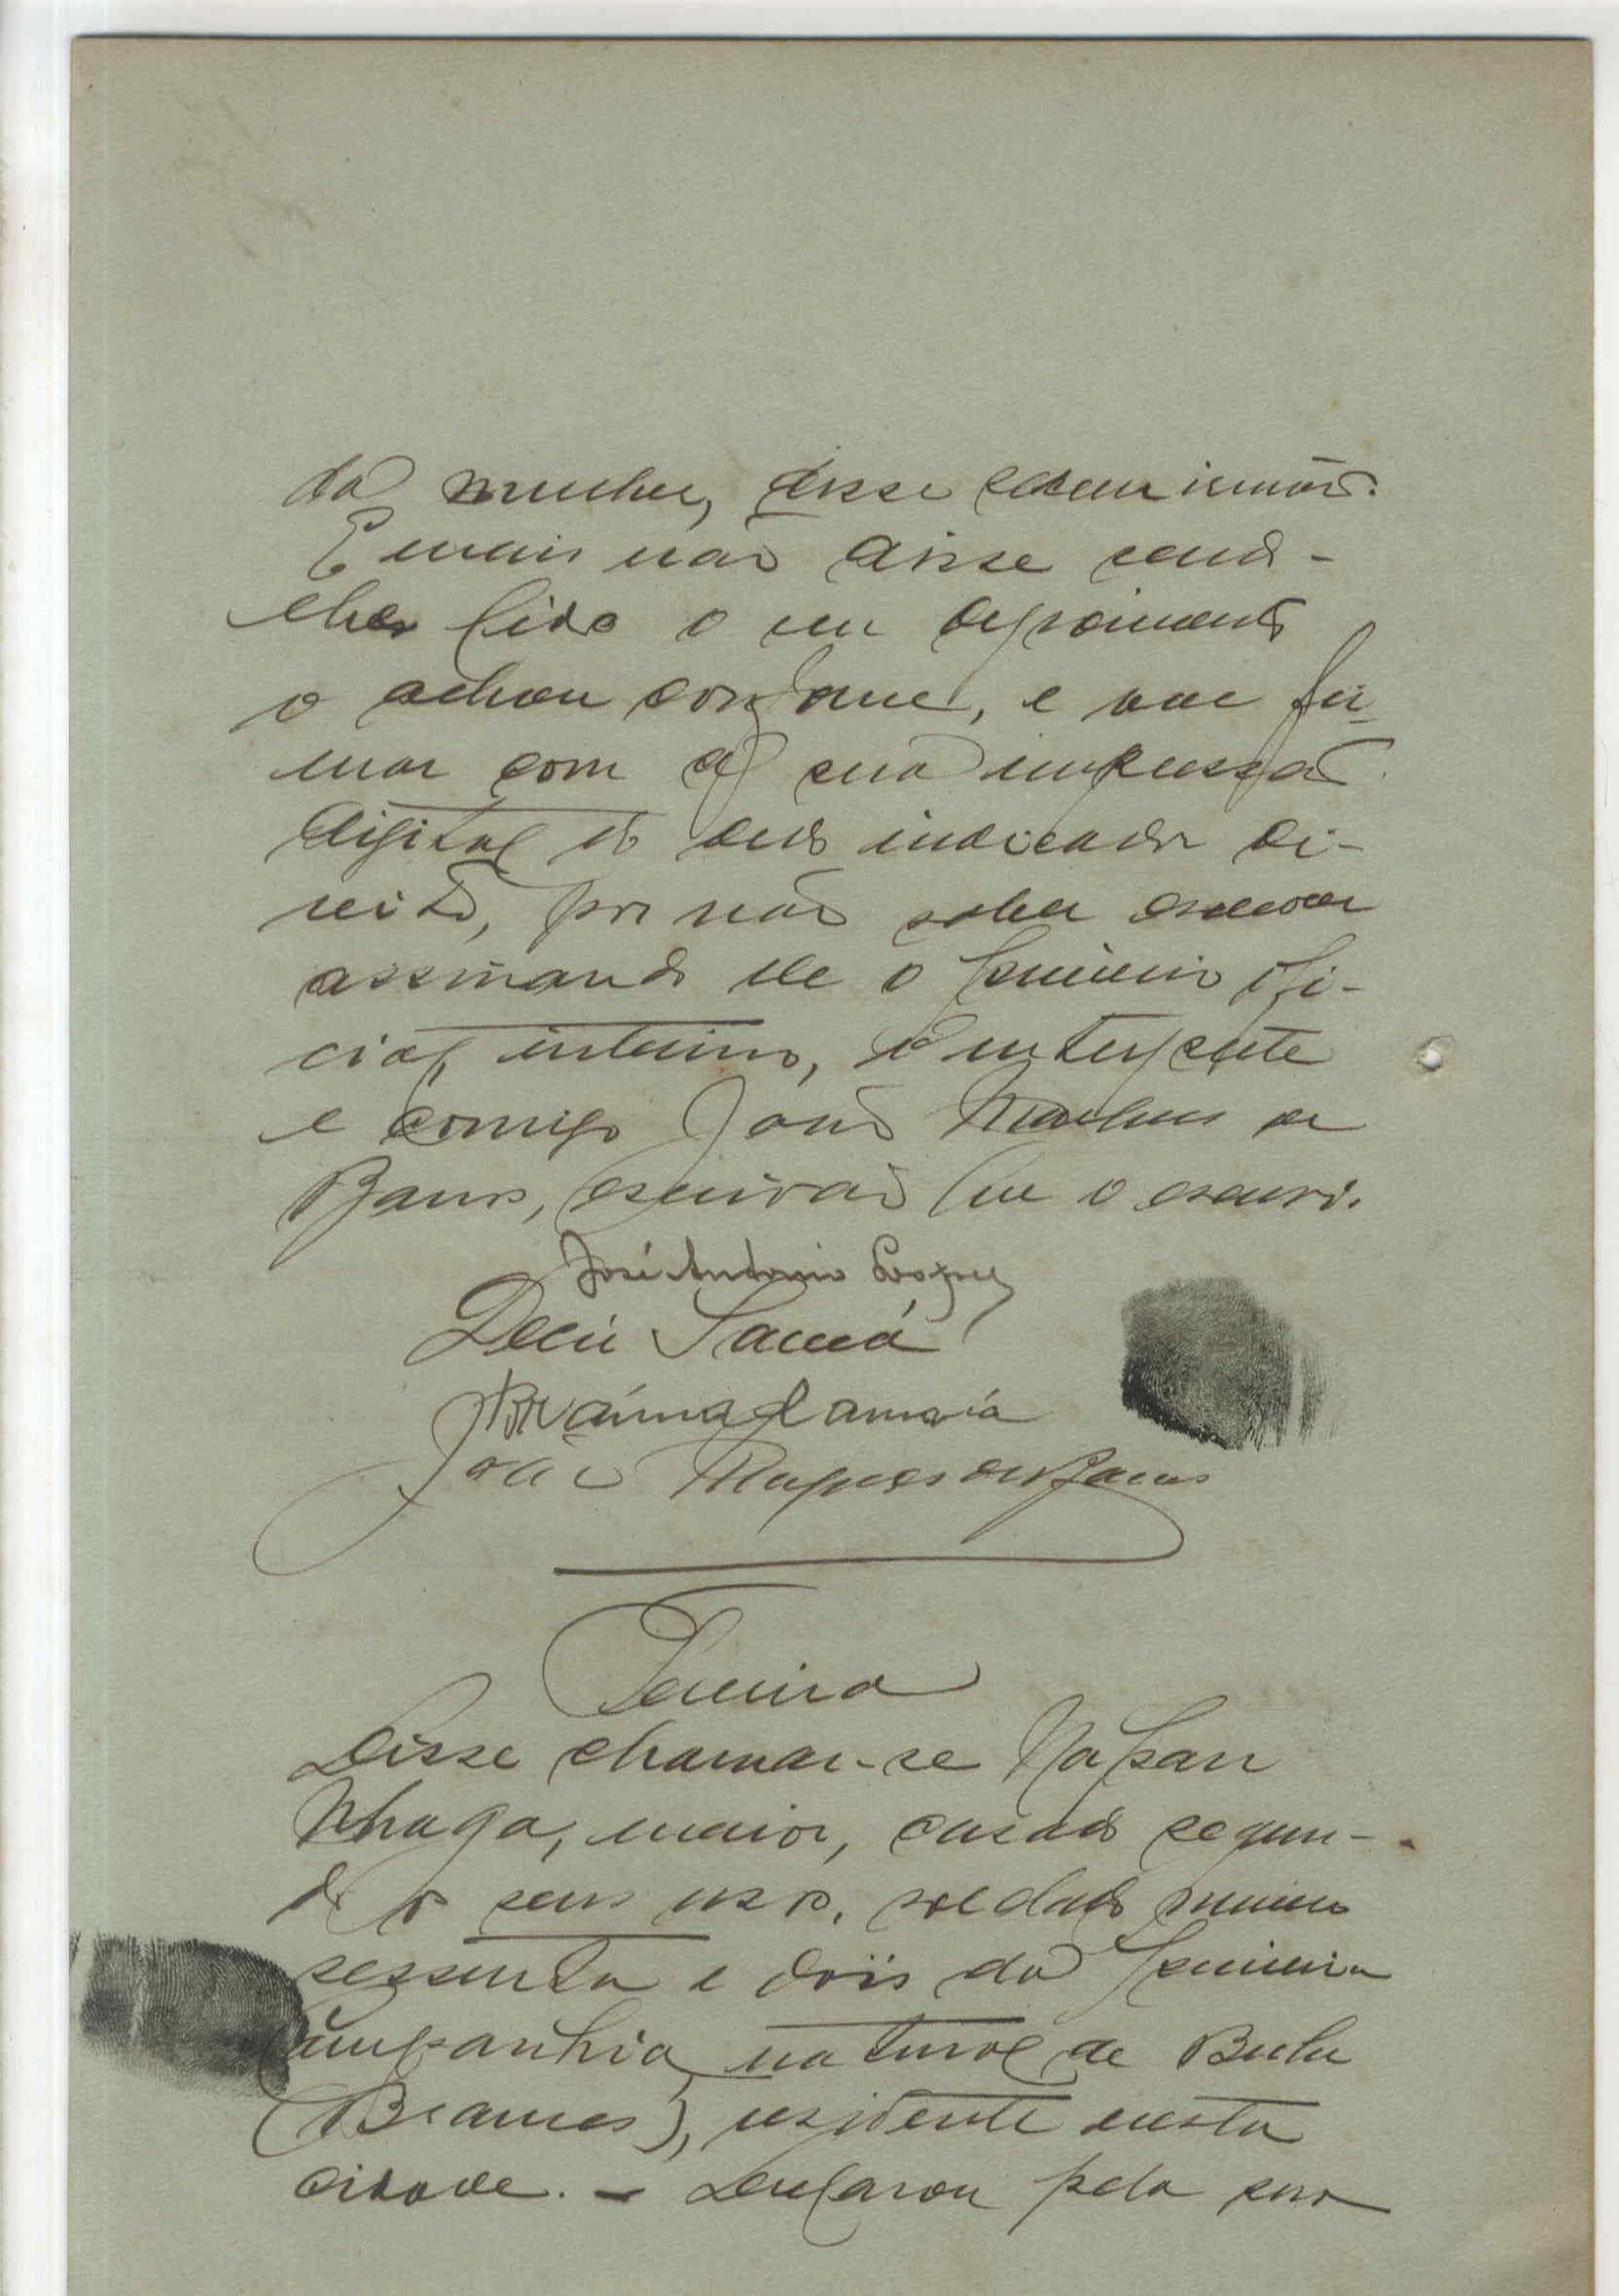 da mulher, disse serem irmãos.
E mais não disse sendo-
lhe lido o seu depoimento
o achou conforme, e vae fir-
mar com a sua impressão
digital do dedo indicador di-
reito, por não saber escrever
assinando ele o primeiro ofi-
cial interino, o interprete
e comigo João Marques de
Barros, escrivão que o escrevi.
José Antonio
Samá
Camará
João Marques de Barros
Terceira
Disse chamar-se Natan
Nhaga, maior, casado segun-
do os seus usos, soldado numero
sessenta e dois da primeira
companhia, natural de Bula
(Brames), residente nesta
cidade. - Declarou pela sua